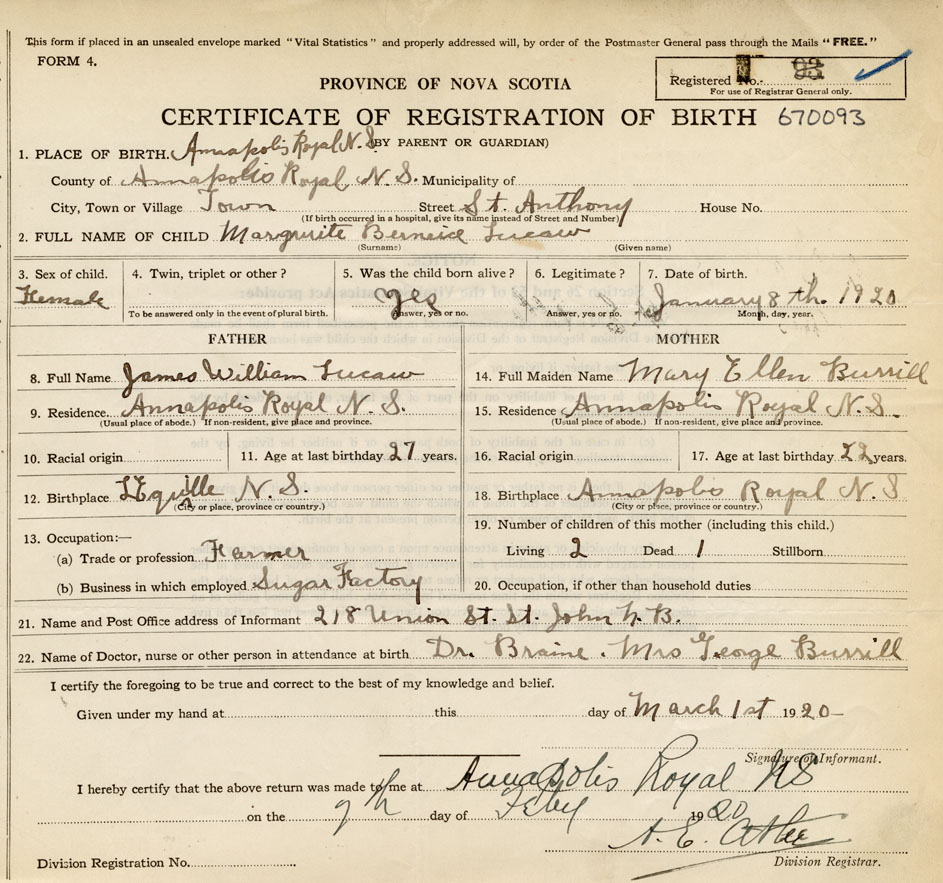 This form if placed in an unsealed envelope marked "Vital Statistics" and properly addressed will, by order of the Postmaster General pass through the Mails "FREE."
FORM 4.
Registered No. 93
For use of Registrar General only.
PROVINCE OF NOVA SCOTIA
CERTIFICATE OF REGISTRATION OF BIRTH 670093
(BY PARENT OR GUARDIAN)
1. PLACE OF BIRTH. Annapolis Royal N.S.
County of Annapolis Royal, N.S. Municipality of
City, Town or Village Town Street St. Anthony House No.
(If birth occurred in a hospital, give its name instead of Street and Number)
2. FULL NAME OF CHILD Margurite Berneice Lucaw
(Surname) (Given name)
3. Sex of child. 4. Twin, triplet or other? 5. Was the child born alive? 6. Legitimate? 7. Date of birth.
Female Yes January 8th. 1920
To be answered only in the event of plural birth. Answer, yes or no. Answer, yes or no. Month, day, year.
FATHER MOTHER
8. Full Name James William Lucaw 14. Full Maiden Name Mary Ellen Burrill
9. Residence. Annapolis Royal N.S. 15. Residence Annapolis Royal N.S.
(Usual place of abode.) If non-resident, give place and province. (Usual place of abode.) If non-resident, give place and province.
10. Racial origin 11. Age at last birthday 27 years. 16. Racial origin 17. Age at last birthday 22 years.
12. Birthplace LEquille N.S. 18. Birthplace Annapolis Royal N.S
(City or place, province or country.) (City or place, province or country.)
13. Occupation:— 19. Number of children of this mother (including this child.)
(a) Trade or profession Farmer Living 2 Dead 1 Stillborn
(b) Business in which employed Sugar Factory 20. Occupation, if other than household duties
21. Name and Post Office address of Informant 218 Union St. St. John N.B.
22. Name of Doctor, nurse or other person in attendance at birth Dr. Braine. Mrs George Burrill
I certify the foregoing to be true and correct to the best of my knowledge and belief.
Given under my hand at this day of March 1st 1920—
Signature of Informant.
I hereby certify that the above return was made to me at Annapolis Royal NS
on the 9th day of Feby 1920
A. E. Atlee
Division Registration No. Division Registrar.